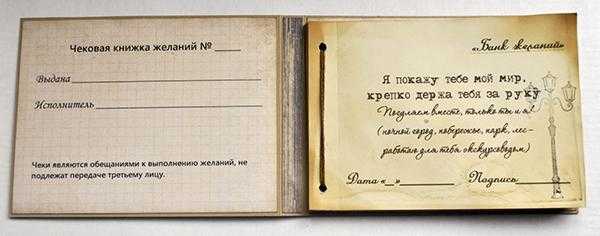 Чековая книжка желаний № _____
Выдана
Исполнитель
Чеки являются обещаниями к выполнению желаний, не
подлежат передаче третьему лицу.
«Банк желаний»
Я покажу тебе мой мир,
крепко держа тебя за руку
Погуляем вместе, только ты и я!
(ночной город, побережье, парк, лес-
работаю для тебя экскурсоводом)
Дата «__»__________ Подпись__________